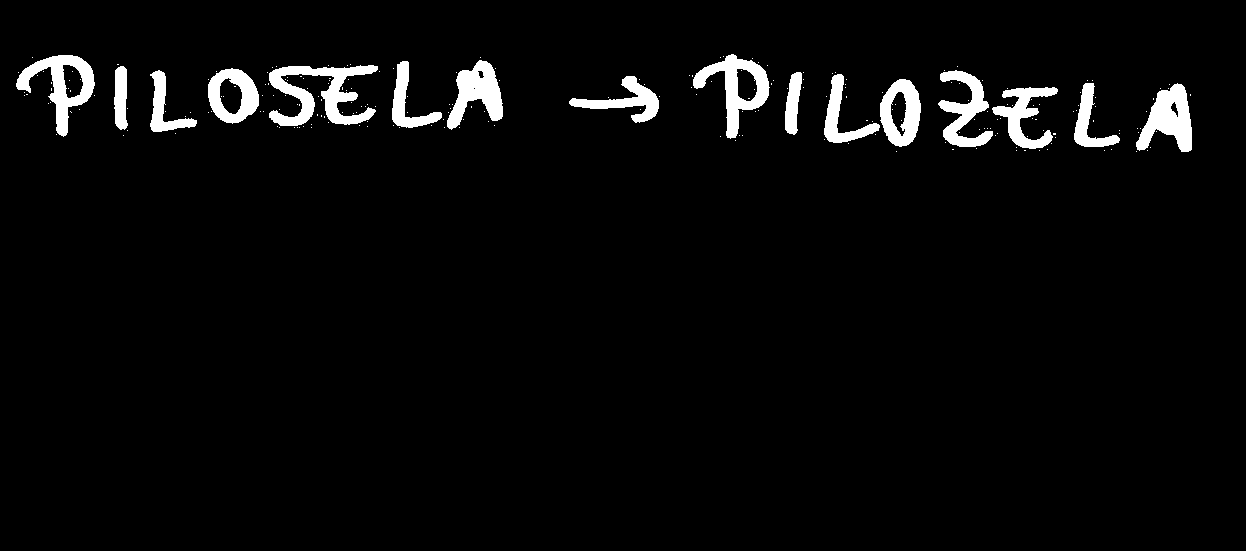 PILOSELA → PILOZELA